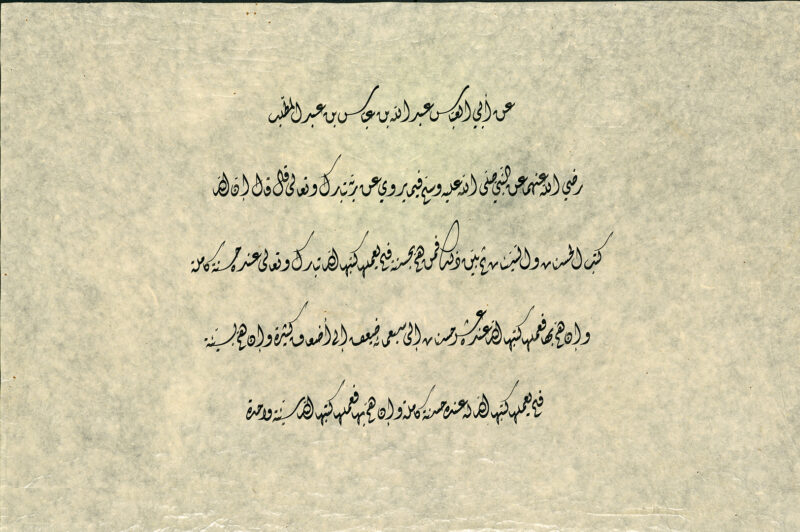 عن أبي العباس عبد الله بن عباس بن عبد المطلب
رضي الله عنهما عن النبي صلى الله عليه وسلم فيما يروي عن ربه تبارك وتعالى قال قال إن الله
كتب الحسنات والسيئات ثم بين ذلك فمن هم بحسنة فلم يعملها كتبها الله تبارك وتعالى عنده حسنة كاملة
وإن هم بها فعملها كتبها الله عنده عشر حسنات إلى سبعمائة ضعف إلى أضعاف كثيرة وإن هم بسيئة
فلم يعملها كتبها الله له عنده حسنة كاملة وإن هم بها فعملها كتبها الله سيئة واحدة